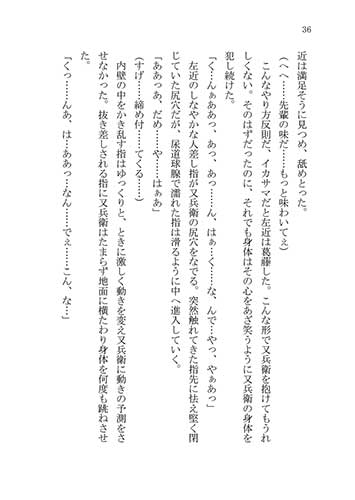 36
近は満足そうに見つめ、舐めとった。
(へへ……先輩の味だ……もっと味わいてぇ)
こんなやり方反則だ、イカサマだと左近は葛藤した。こんな形で又兵衛を抱けてもうれ
しくない。そのはずだったのに、それでも身体はその心をあざ笑うように又兵衛の身体を
犯し続けた。
「く…んぁああっ、あっ、あっ……ん、はぁ…く……な、んで…やっ、やぁあっ」
左近のしなやかな人差し指が又兵衛の尻穴をなでる。突然触れてきた指先に怯え堅く閉
じていた尻穴だが、尿道球腺で濡れた指は滑るように中へ進入していく。
「ああっあ、だめ……や……はぁあ」
(すげ……締め付……てくる……)
内壁の中をかき乱す指はゆっくりと、ときに激しく動きを変え又兵衛に動きの予測をさ
せなかった。抜き差しされる指に又兵衛はたまらず地面に横たわり身体を何度も跳ねさせ
た。
「くっ……んあ、は…ああっ…なん……でぇ……こん、な…」